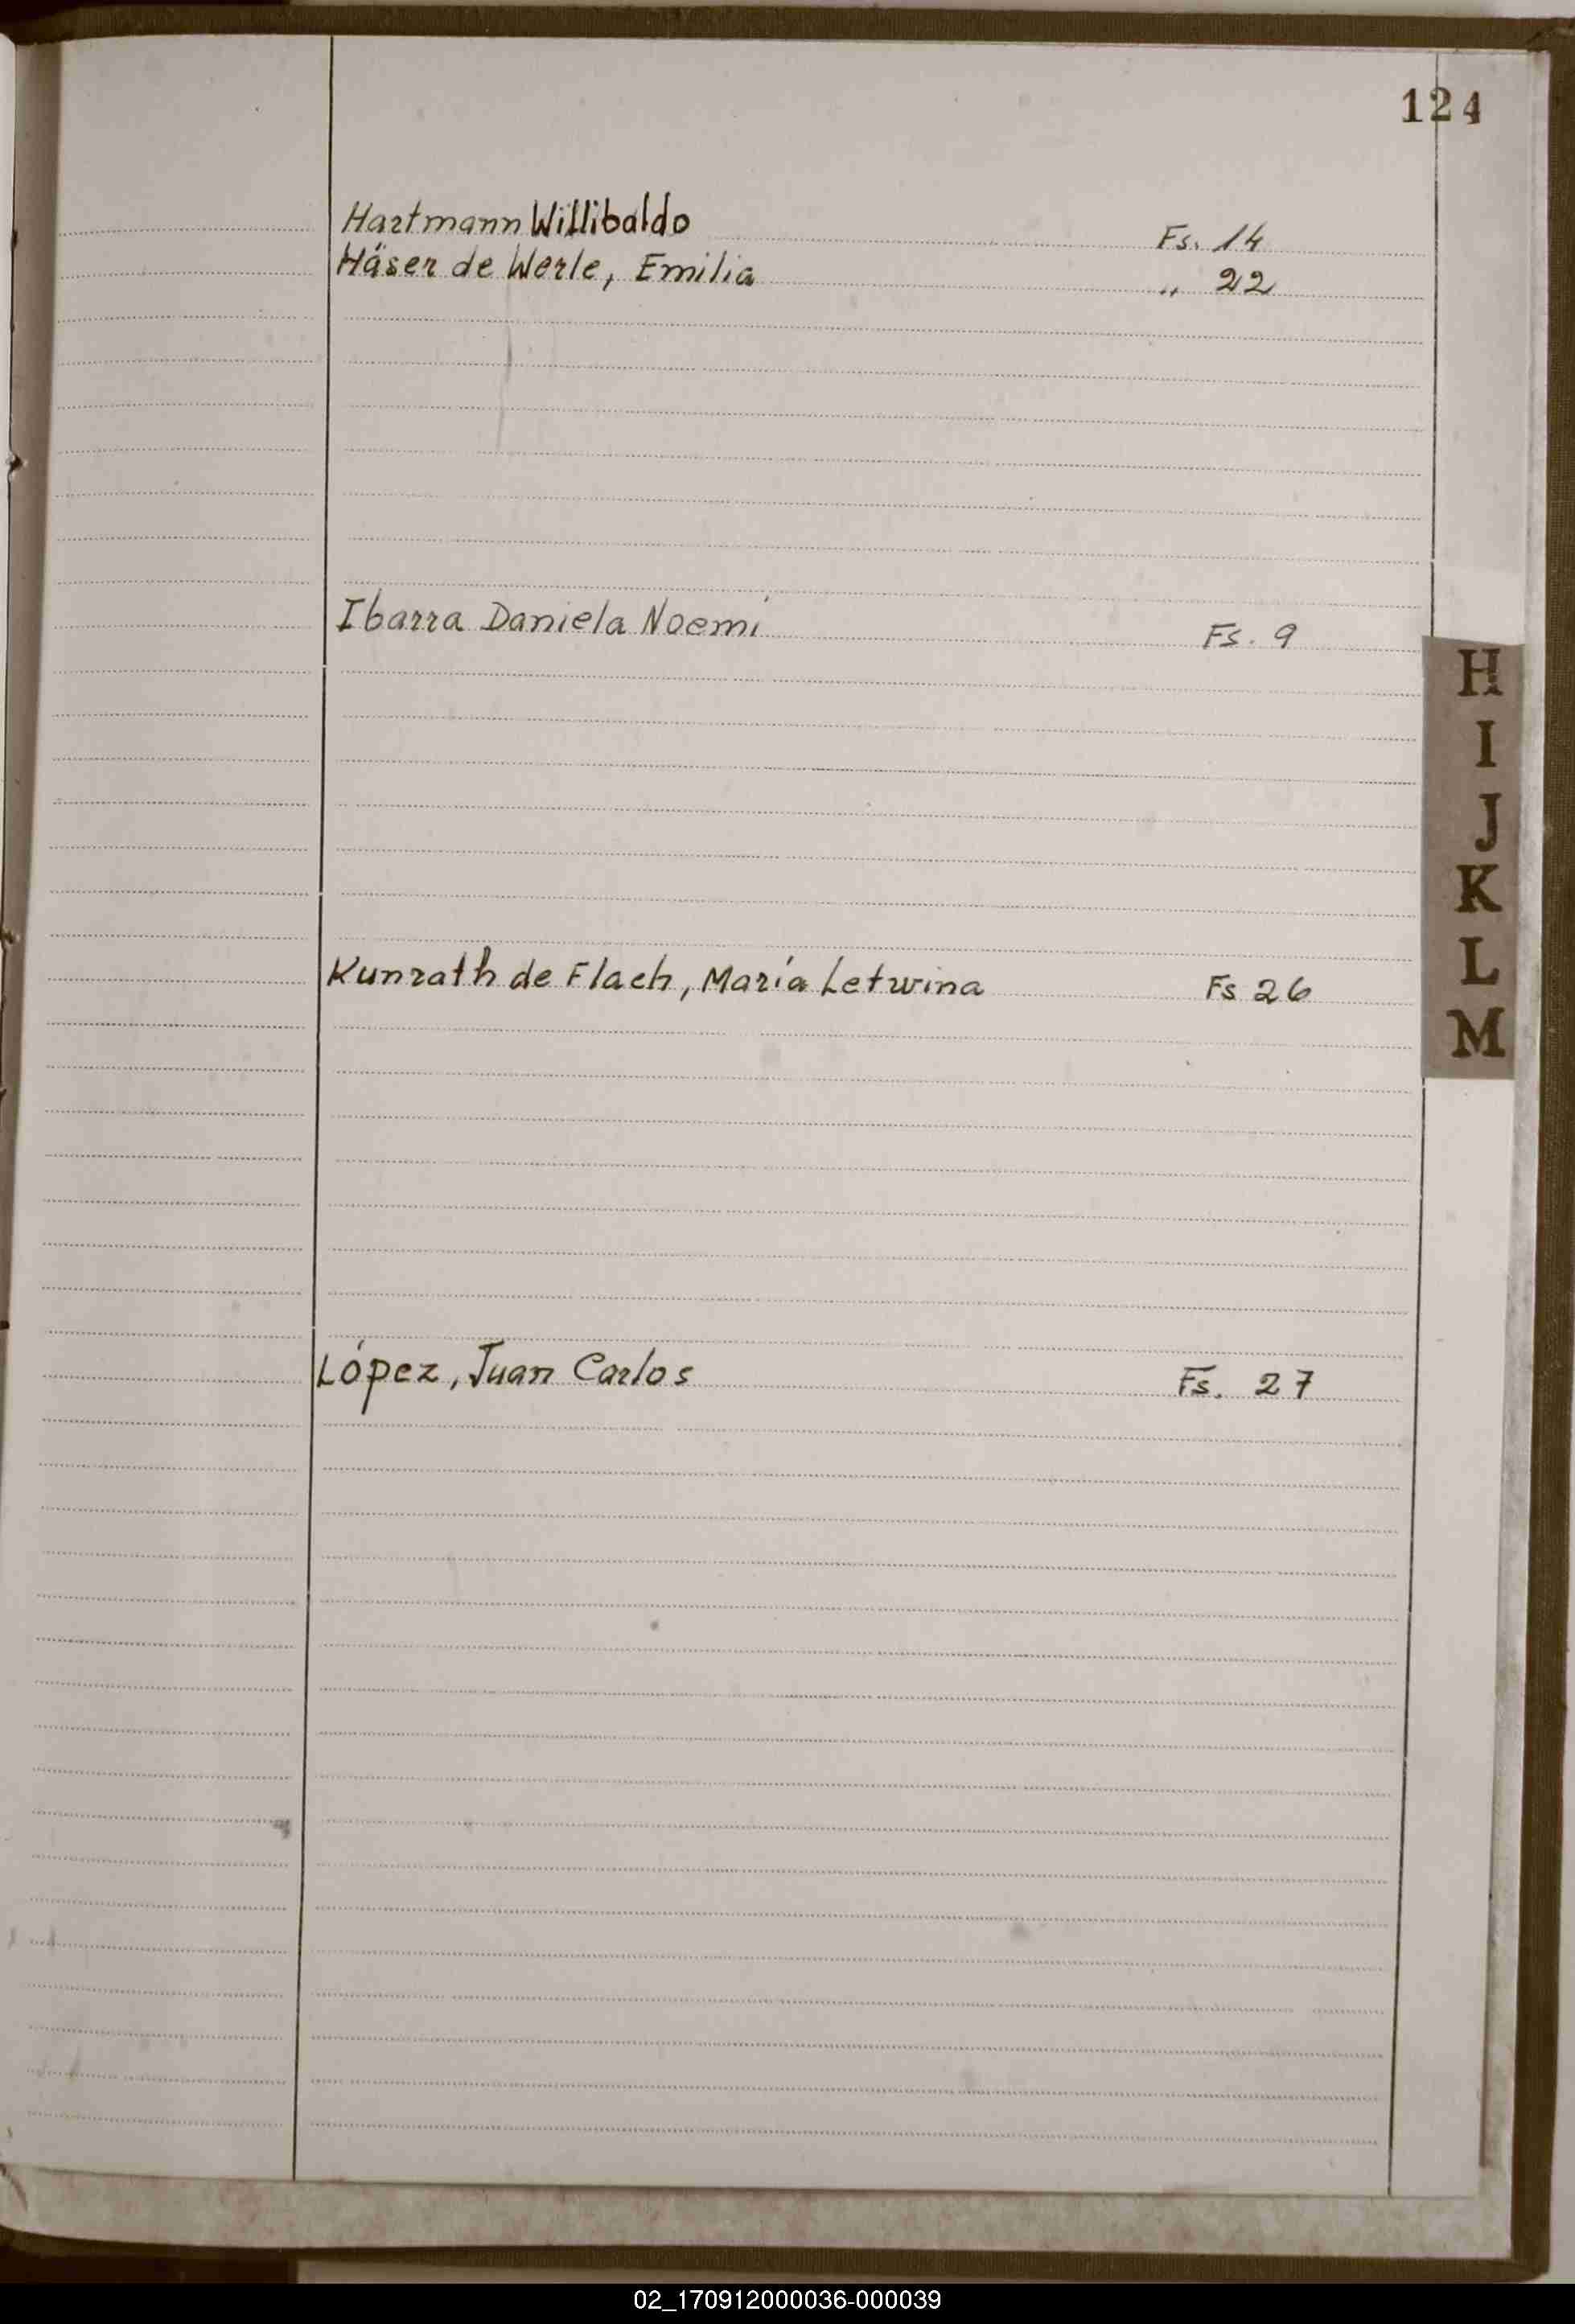 124
Hartmann Willibaldo Fs. 14
Häser de Werle, Emilia " 22
Ibarra Daniela Noemí Fs. 9
H
I
J
K
L
M
Kunrath de Flach, María Letwina Fs 26
López, Juan Carlos Fs. 27
02_170912000036-000039